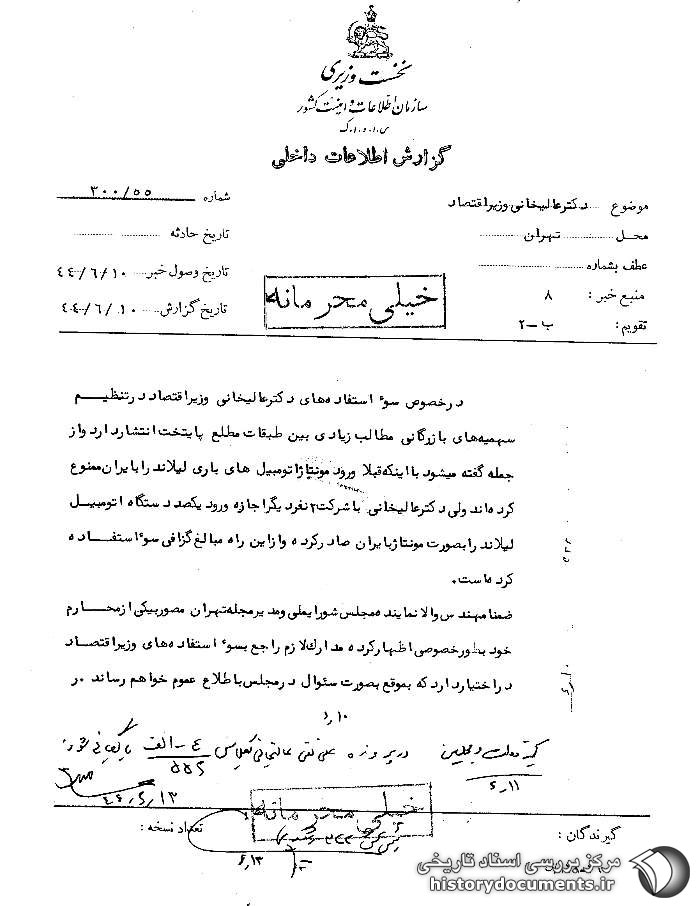 نخست وزیری
سازمان اطلاعات و امنیت کشور
س.ا.و.ا.ک
گزارش اطلاعات داخلی
موضوع دکترعالیخانی وزیراقتصاد
محل تهران
عطف بشماره
منبع خبر : ۸
تقویم : ب-۲
شماره ۳۰۰/۵۵
تاریخ حادثه
تاریخ وصول خبر ۴۴/۶/۱۰
تاریخ گزارش ۴۴/۶/۱۰
خیلی محرمانه
درخصوص سوء استفاده‌های دکترعالیخانی وزیراقتصاد درتنظیم
سهمیه‌های بازرگانی مطالب زیادی بین طبقات مطلع پایتخت انتشاردارد واز
جمله گفته میشود با اینکه قبلا ورود مونتاژ اتومبیل های باری لیلاند را بایران ممنوع
کرده‌اند ولی دکترعالیخانی با شرکت ۲ نفر دیگر اجازه ورود یکصد دستگاه اتومبیل
لیلاند را بصورت مونتاژ بایران صادرکرده و ازاین راه مبالغ گزافی سوء استفاده
کرده است.
ضمنا مهندس والا نماینده مجلس شورایملی ومدیر مجله تهران مصور بیکی از محارم
خود بطورخصوصی اظهارکرده مدارک لازم راجع بسوء استفاده های وزیراقتصاد
دراختیاردارد که بموقع بصورت سئوال درمجلس باطلاع عموم خواهم رساند. ر
۶/۱۰
در پرونده علی نقی عالیخانی کلاس ۴-الف بایگانی شود
۵۵۲
۶/۱۱
۴۴/۶/۱۳
خیلی محرمانه
۶/۱۳
گیرندگان :
تعداد نسخه :
مرکز بررسی اسناد تاریخی
historydocuments.ir